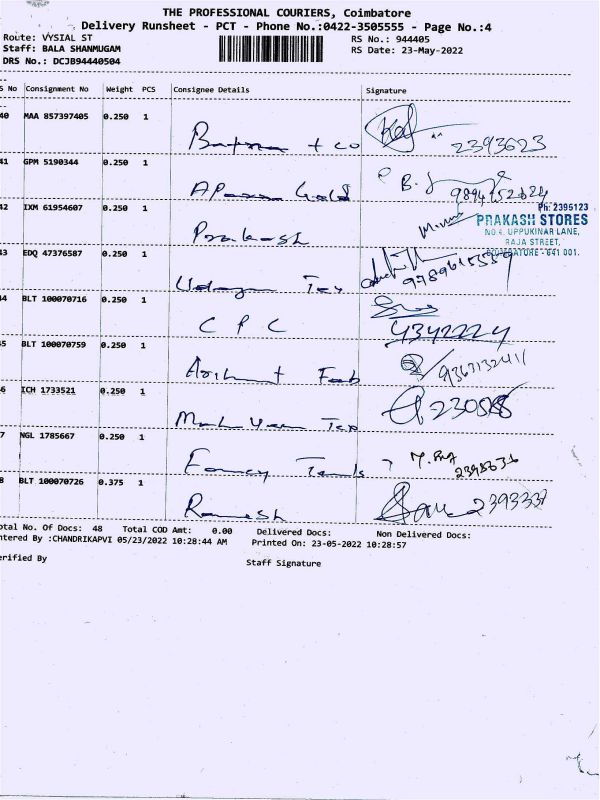 THE PROFESSIONAL COURIERS, Coimbatore
Delivery Runsheet - PCT - Phone No.:0422-3505555 - Page No.:4
Route: VYSIAL ST
RS No.: 944405
Staff: BALA SHANMUGAM
RS Date: 23-May-2022
DRS No.: DCJB94440504
S No Consignment No Weight PCS Consignee Details Signature
40 MAA 857397405 0.250 1
+ co 2393623
41 GPM 5190344 0.250 1
Gold B.
42 IXM 61954607 0.250 1
Prakash
Ph: 2395123
PRAKASH STORES
NO.4, UPPUKINAR LANE,
RAJA STREET,
COIMBATORE - 641 001.
43 EDQ 47376587 0.250 1
Tex
44 BLT 100070716 0.250 1
C P C 4342224
45 BLT 100070759 0.250 1
Arihant Fab
46 ICH 1733521 0.250 1
Tex
47 NGL 1785667 0.250 1
Fancy
48 BLT 100070726 0.375 1
Ramesh
otal No. Of Docs: 48 Total COD Amt: 0.00 Delivered Docs: Non Delivered Docs:
ntered By :CHANDRIKAPVI 05/23/2022 10:28:44 AM Printed On: 23-05-2022 10:28:57
erified By Staff Signature